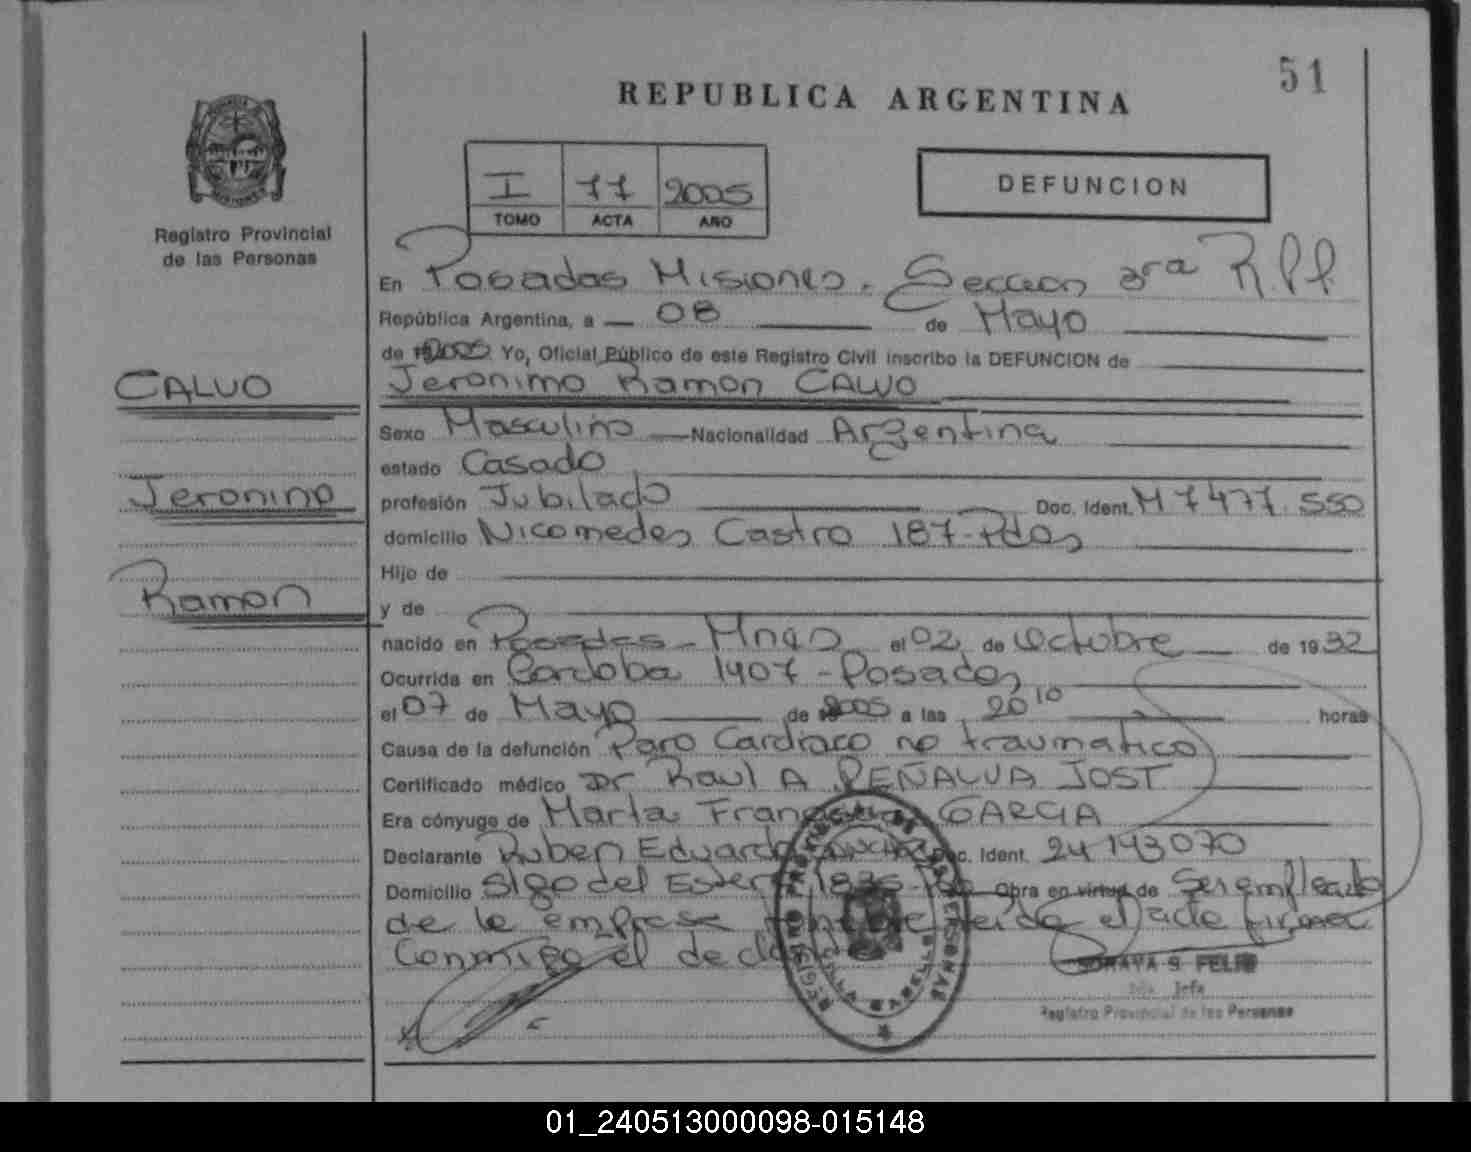 51
REPUBLICA ARGENTINA
I 11 2005
TOMO ACTA AÑO
DEFUNCION
Registro Provincial
de las Personas
CALVO
Jeronimo
Ramon
En Posadas Misiones. Seccion 3ra R.P.P.
República Argentina, a 08 de Mayo
de 2005 Yo, Oficial Público de este Registro Civil inscribo la DEFUNCION de
Jeronimo Ramon CALVO
Sexo Masculino Nacionalidad Argentina
estado Casado
profesión Jubilado Doc. Ident. M 7477.550
domicilio Nicomedes Castro 187-Pdas
Hijo de
y de
nacido en Posadas - Mnes el 02 de Octubre de 1932
Ocurrida en Cordoba 1407 - Posadas
el 07 de Mayo de 2005 a las 20 10 horas
Causa de la defunción Paro Cardiaco no traumatico
Certificado médico Dr Raul A PEÑALVA JOST
Era cónyuge de Marta GARCIA
Declarante Ruben Eduardo Doc. Ident. 24143070
Domicilio Sgo del Estero Obra en virtud de Ser empleado
de la empresa el acta firma
Conmigo el
SORAYA S. FELIU
Jefa
Registro Provincial de las Personas
01_240513000098-015148